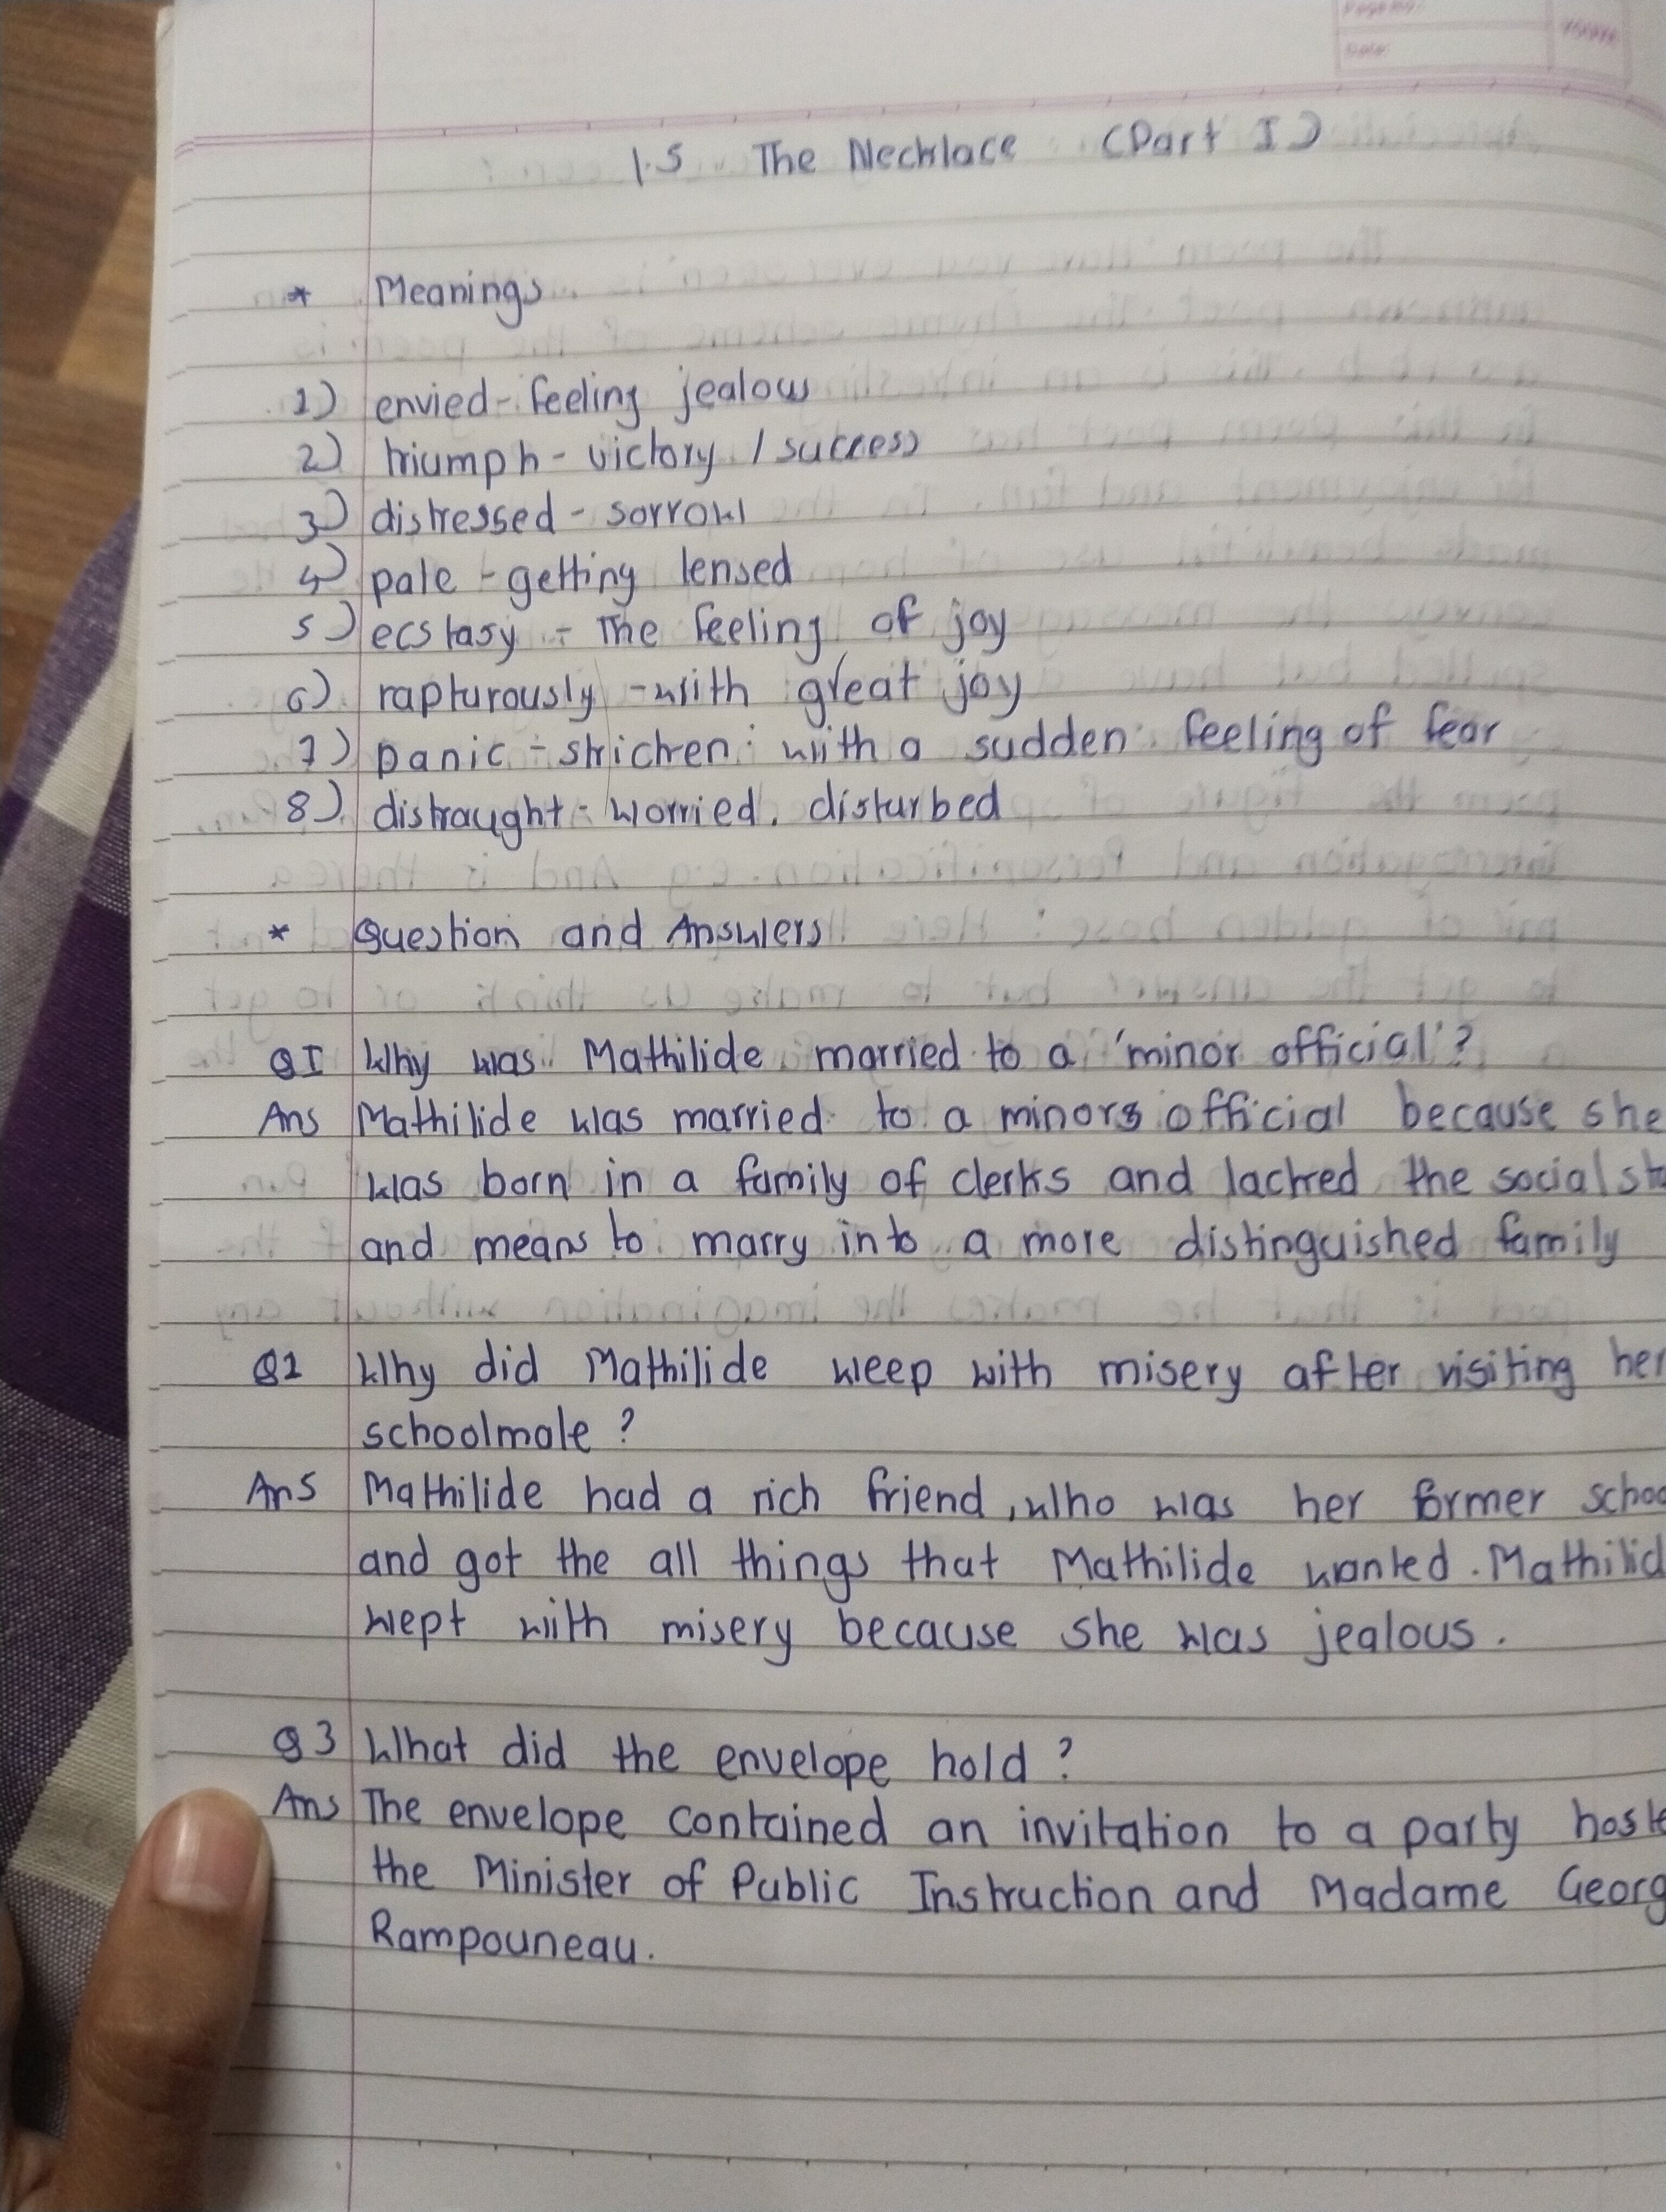 Page No.
Date:
1.5 The Necklace (Part I)
* Meanings
1) envied - feeling jealous
2) triumph - victory / success
3) distressed - sorrow
4) pale - getting lensed
5) ecstasy - The feeling of joy
6) rapturously - with great joy
7) panic - stricken : with a sudden feeling of fear
8) distraught - worried, disturbed
* Question and Answers
Q1 Why was Mathilide married to a 'minor official'?
Ans Mathilide was married to a minors official because she
was born in a family of clerks and lacked the social
and means to marry into a more distinguished family
Q2 Why did Mathilide weep with misery after visiting her
schoolmate ?
Ans Mathilide had a rich friend, who was her former schoo
and got the all things that Mathilide wanted. Mathilid
wept with misery because she was jealous.
Q3 What did the envelope hold ?
Ans The envelope contained an invitation to a party hoste
the Minister of Public Instruction and Madame Georg
Rampouneau.